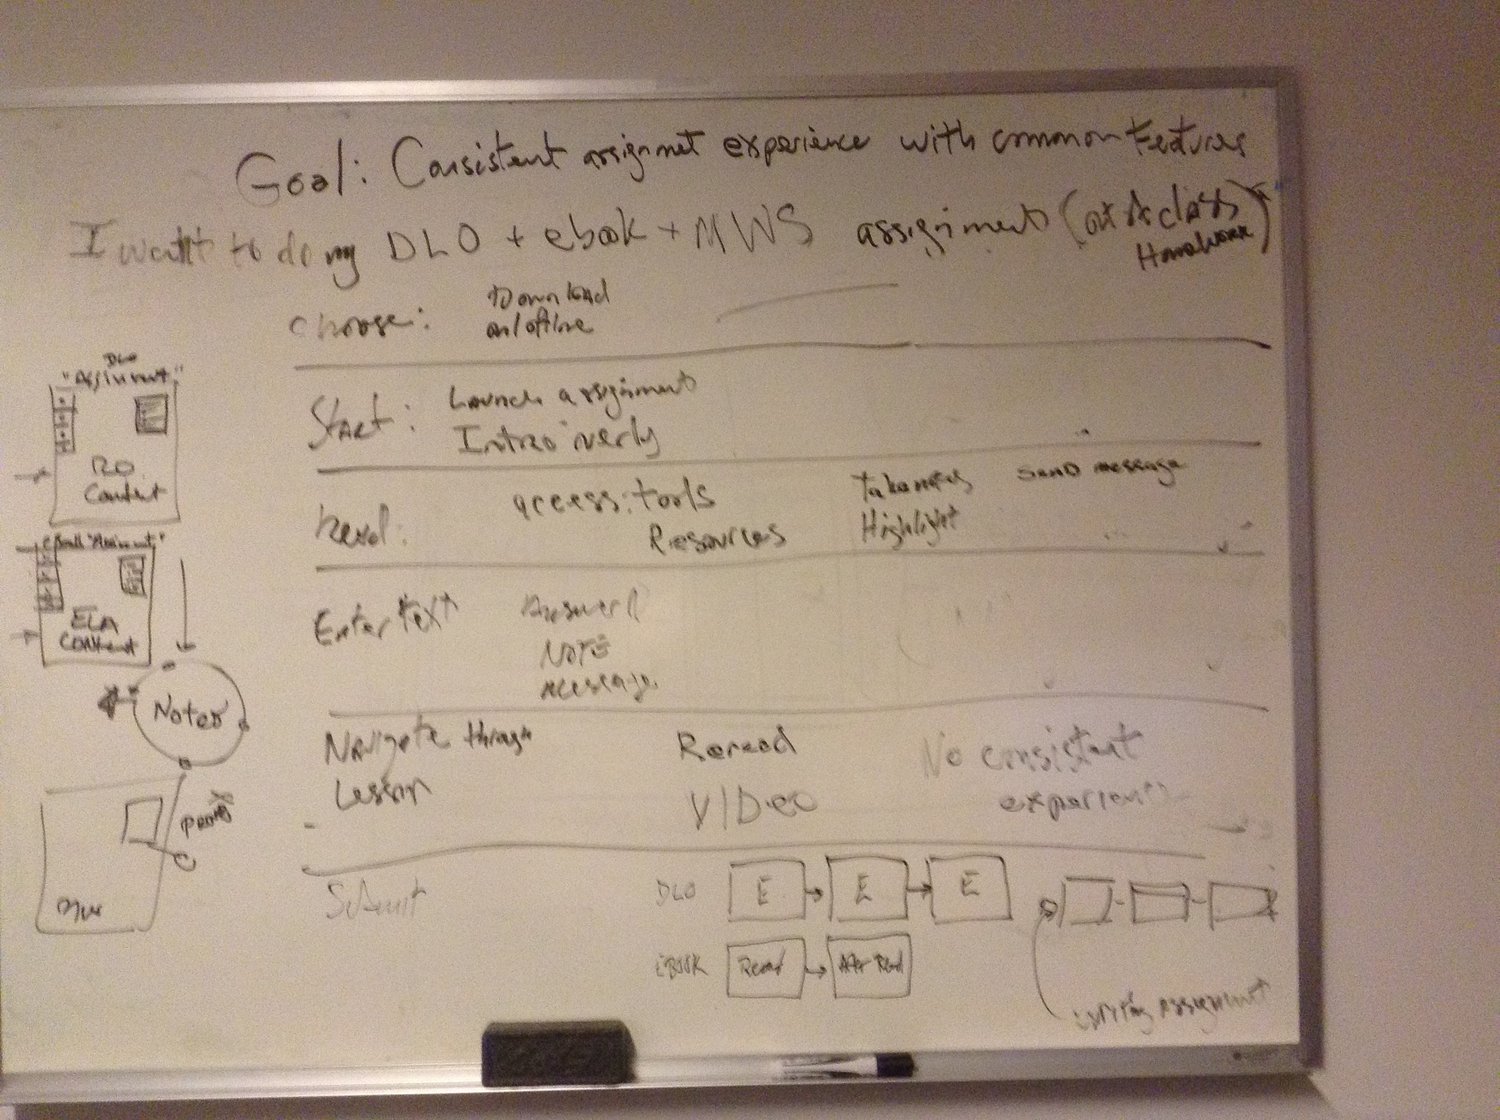 Goal: Consistent assignmet experience with common features
I want to do my DLO + ebook + MWS assignment (at class
Homework)
Choose: Download
on/offline
Start: Launch assignment
Intro
Read: access: tools
Resources
Take notes
Highlight
Send message
Enter text
Answer
NOTE
message
Navigate through
Lesson
Reread
VIDEO
No consistent
experience
Submit
DLO E E E
eBOOK Read After Read
writing assignment
DLO
"Assignment"
Content
"Assignment"
ELA
Content
Notes